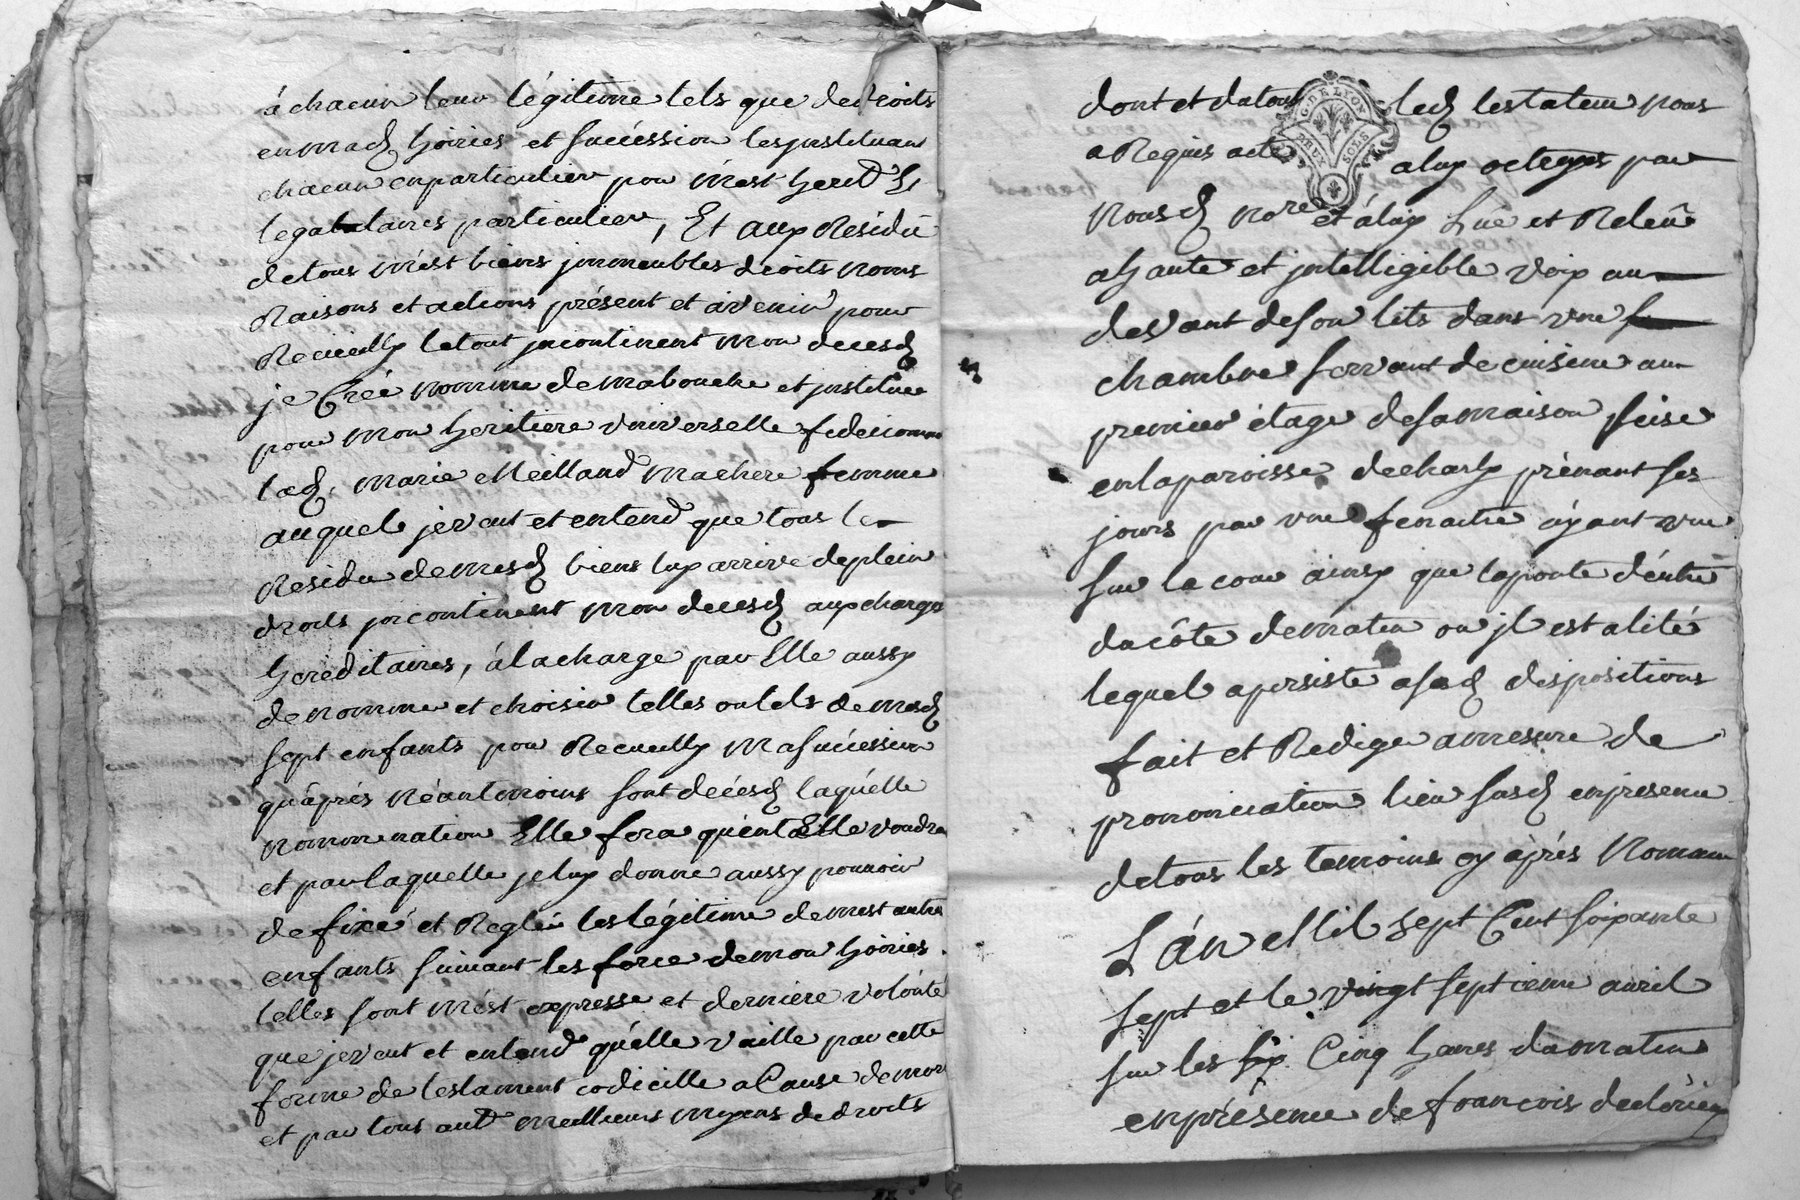 à chacun leur légitime tels que de droits
en mad hoiries et succéssion les jnstituant
chacun en particulier pour mést herit &
legataires particulier, Et aux Résidû
de tous mést biens jmmeubles droits noms
Raisons et actions présent et avenir pour
Recueilly le tout jncontinent mon decesd
je Créé nomme de ma bouche et jnstitue
pour mon heritiere vniverselle fideicomm
lad. Marie Meilland ma chere femme
auquel je veut et entend que tous le
Residu de mesd biens luy arrive de plein
droits jncontinent mon decesd aux charge
hereditaires, à la charge par Elle aussy
de nommer et choisir telles ou tels de mesd
sept enfants pour Recueilly ma succession
qu'aprés néantmoins sont decesd laquélle
nommination Elle fera quient Elle voudra
et par laquelle je luy donne aussy pouvoir
de fixé et Reglér les légitime de mest autre
enfants suivant les force de mon hoiries.
telles sont mést expresse et derniere volonté
que je veut et entend qu'élle vaille par cette
forme de testament codicille a Cause de mor
et par tous aut meilleurs moyens de droits
dont et du tout led testateur nous
G. DE LYON
DEUX SOLS
a Requis acte a luy octroyé par
Nousd nore et à luy Lue et Releû
a haute et jntelligible voix au
devant de son lits dans vne
chambre servant de cuisine au
premier étage de sa maison scise
en la paroisse de charly prénant ses
jours par vne fenaitre ayant vue
sur la cour ainsy que la porte d'éntré
du côte de matin ou jl est alité
lequel a persisté a sad dispositions
fait et Redigé a mesure de
prononciation lieu susd en presence
de tous les temoins cy aprés Nommé
L'án Mil sept Cent soixante
sept et le vingt septieme avril
sur les Cinq heures du matin
en présence de francois